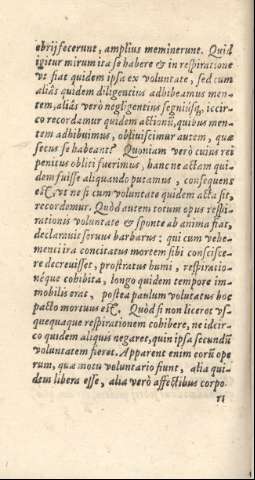 obrij fecerunt, amplius meminerunt. Quid
igitur mirum ita se habere & in respiratione
vt fiat quidem ipsa ex voluntate, sed cum
aliâs quidem diligentius adhibeamus men-
tem, aliâs verò negligentius segniúsq,, iccir-
co recordemur quidem actionũ, quibus men-
tem adhibuimus, obliuiscimur autem, quæ
secus se habeant? Quoniam verò cuius rei
penitus obliti fuerimus, hanc ne actam qui-
dem fuisse aliquando putamus, consequens
est, vt ne si cum voluntate quidem acta sit,
recordemur. Quòd autem totum opus respi-
rationis voluntate & sponte ab anima fiat,
declarauit seruus barbarus: qui cum vehe-
menti ira concitatus mortem sibi conscisce-
re decreuisset, prostratus humi, respiratio-
néque cohibita, longo quidem tempore im-
mobilis erat, postea paulum volutatus hoc
pacto mortuus est. Quòd si non liceret vs-
quequaque respirationem cohibere, ne idcir-
co quidem aliquis negaret, quin ipsa secundũ
voluntatem fieret. Apparent enim corũ ope
rum, quæ motu voluntario fiunt, alia qui-
dem libera esse, alia verò affectibus corpo
ri